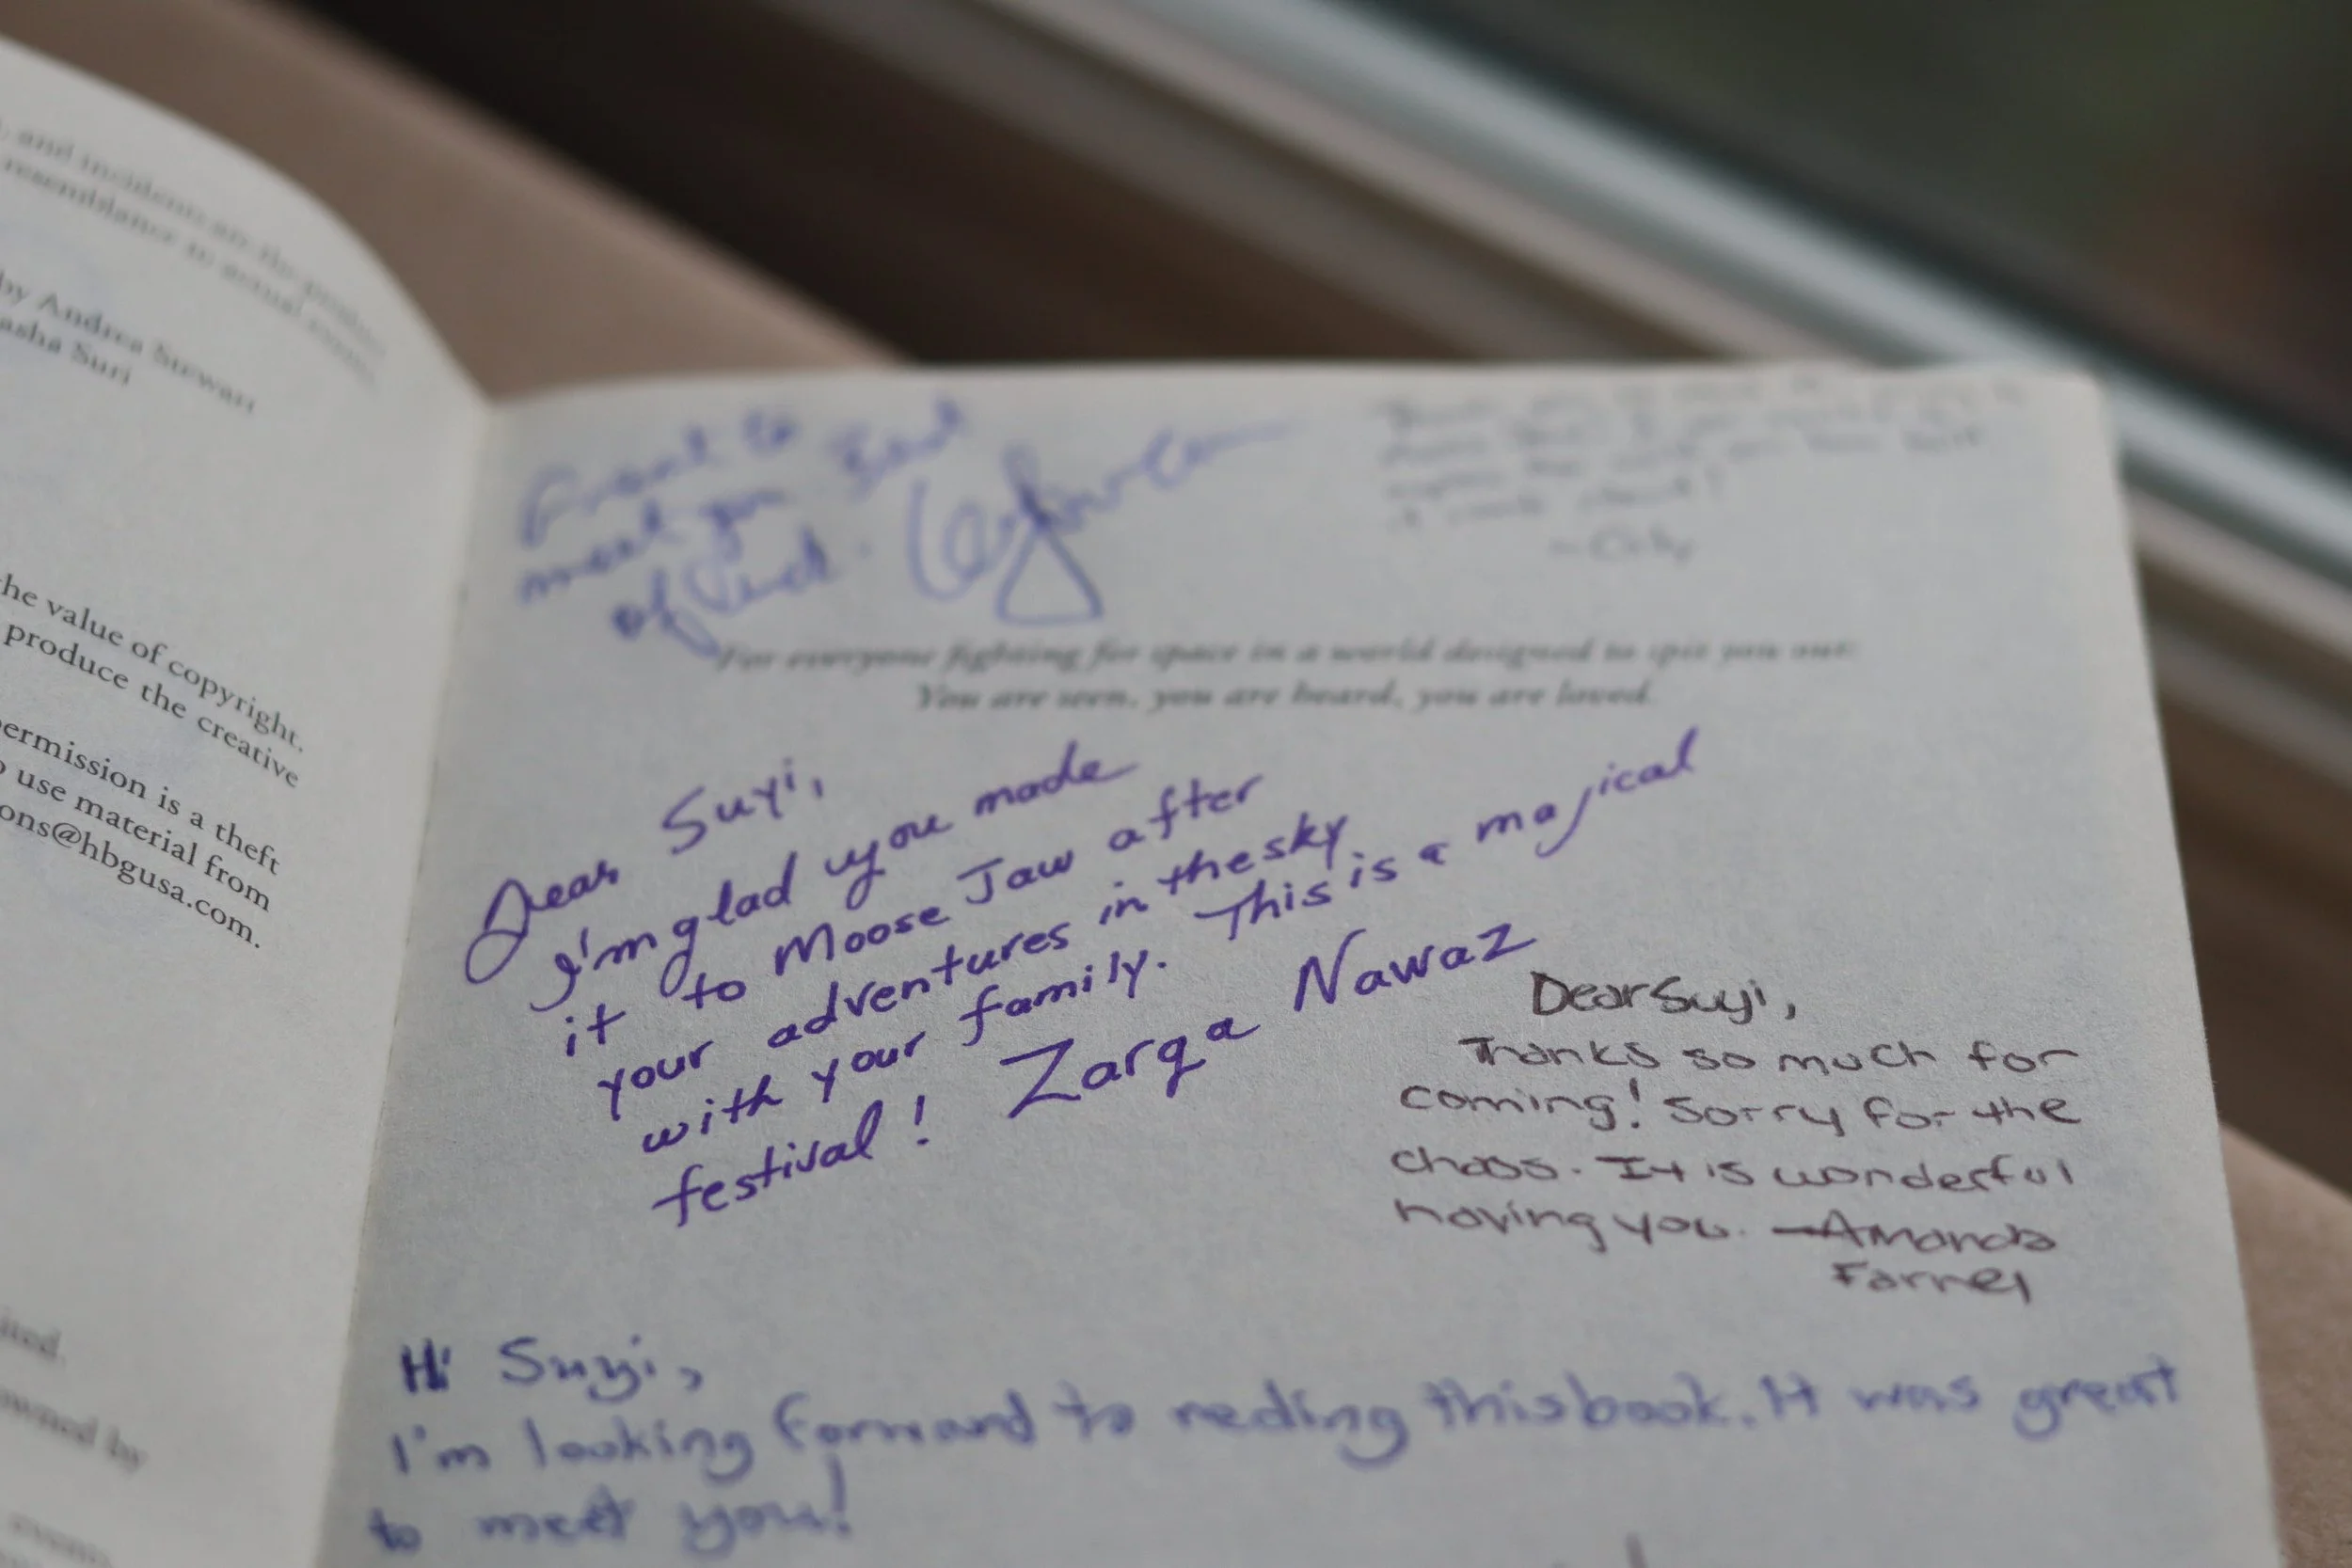 , and incidents are the product
resemblance to actual events,
by Andrea Stewart
asha Suri
he value of copyright.
produce the creative
ermission is a theft
o use material from
ons@hbgusa.com.
ited.
owned by
events
Great to
meet you
For everyone fighting for space in a world designed to spit you out:
You are seen, you are heard, you are loved.
Dear Suyi,
I'm glad you made
it to Moose Jaw after
your adventures in the sky
with your family. This is a majical
festival! Zarqa Nawaz
Dear Suyi,
Thanks so much for
coming! Sorry for the
chaos. It is wonderful
having you. -Amanda
Farnel
Hi Suyi,
I'm looking forward to reding this book. It was great
to meet you!